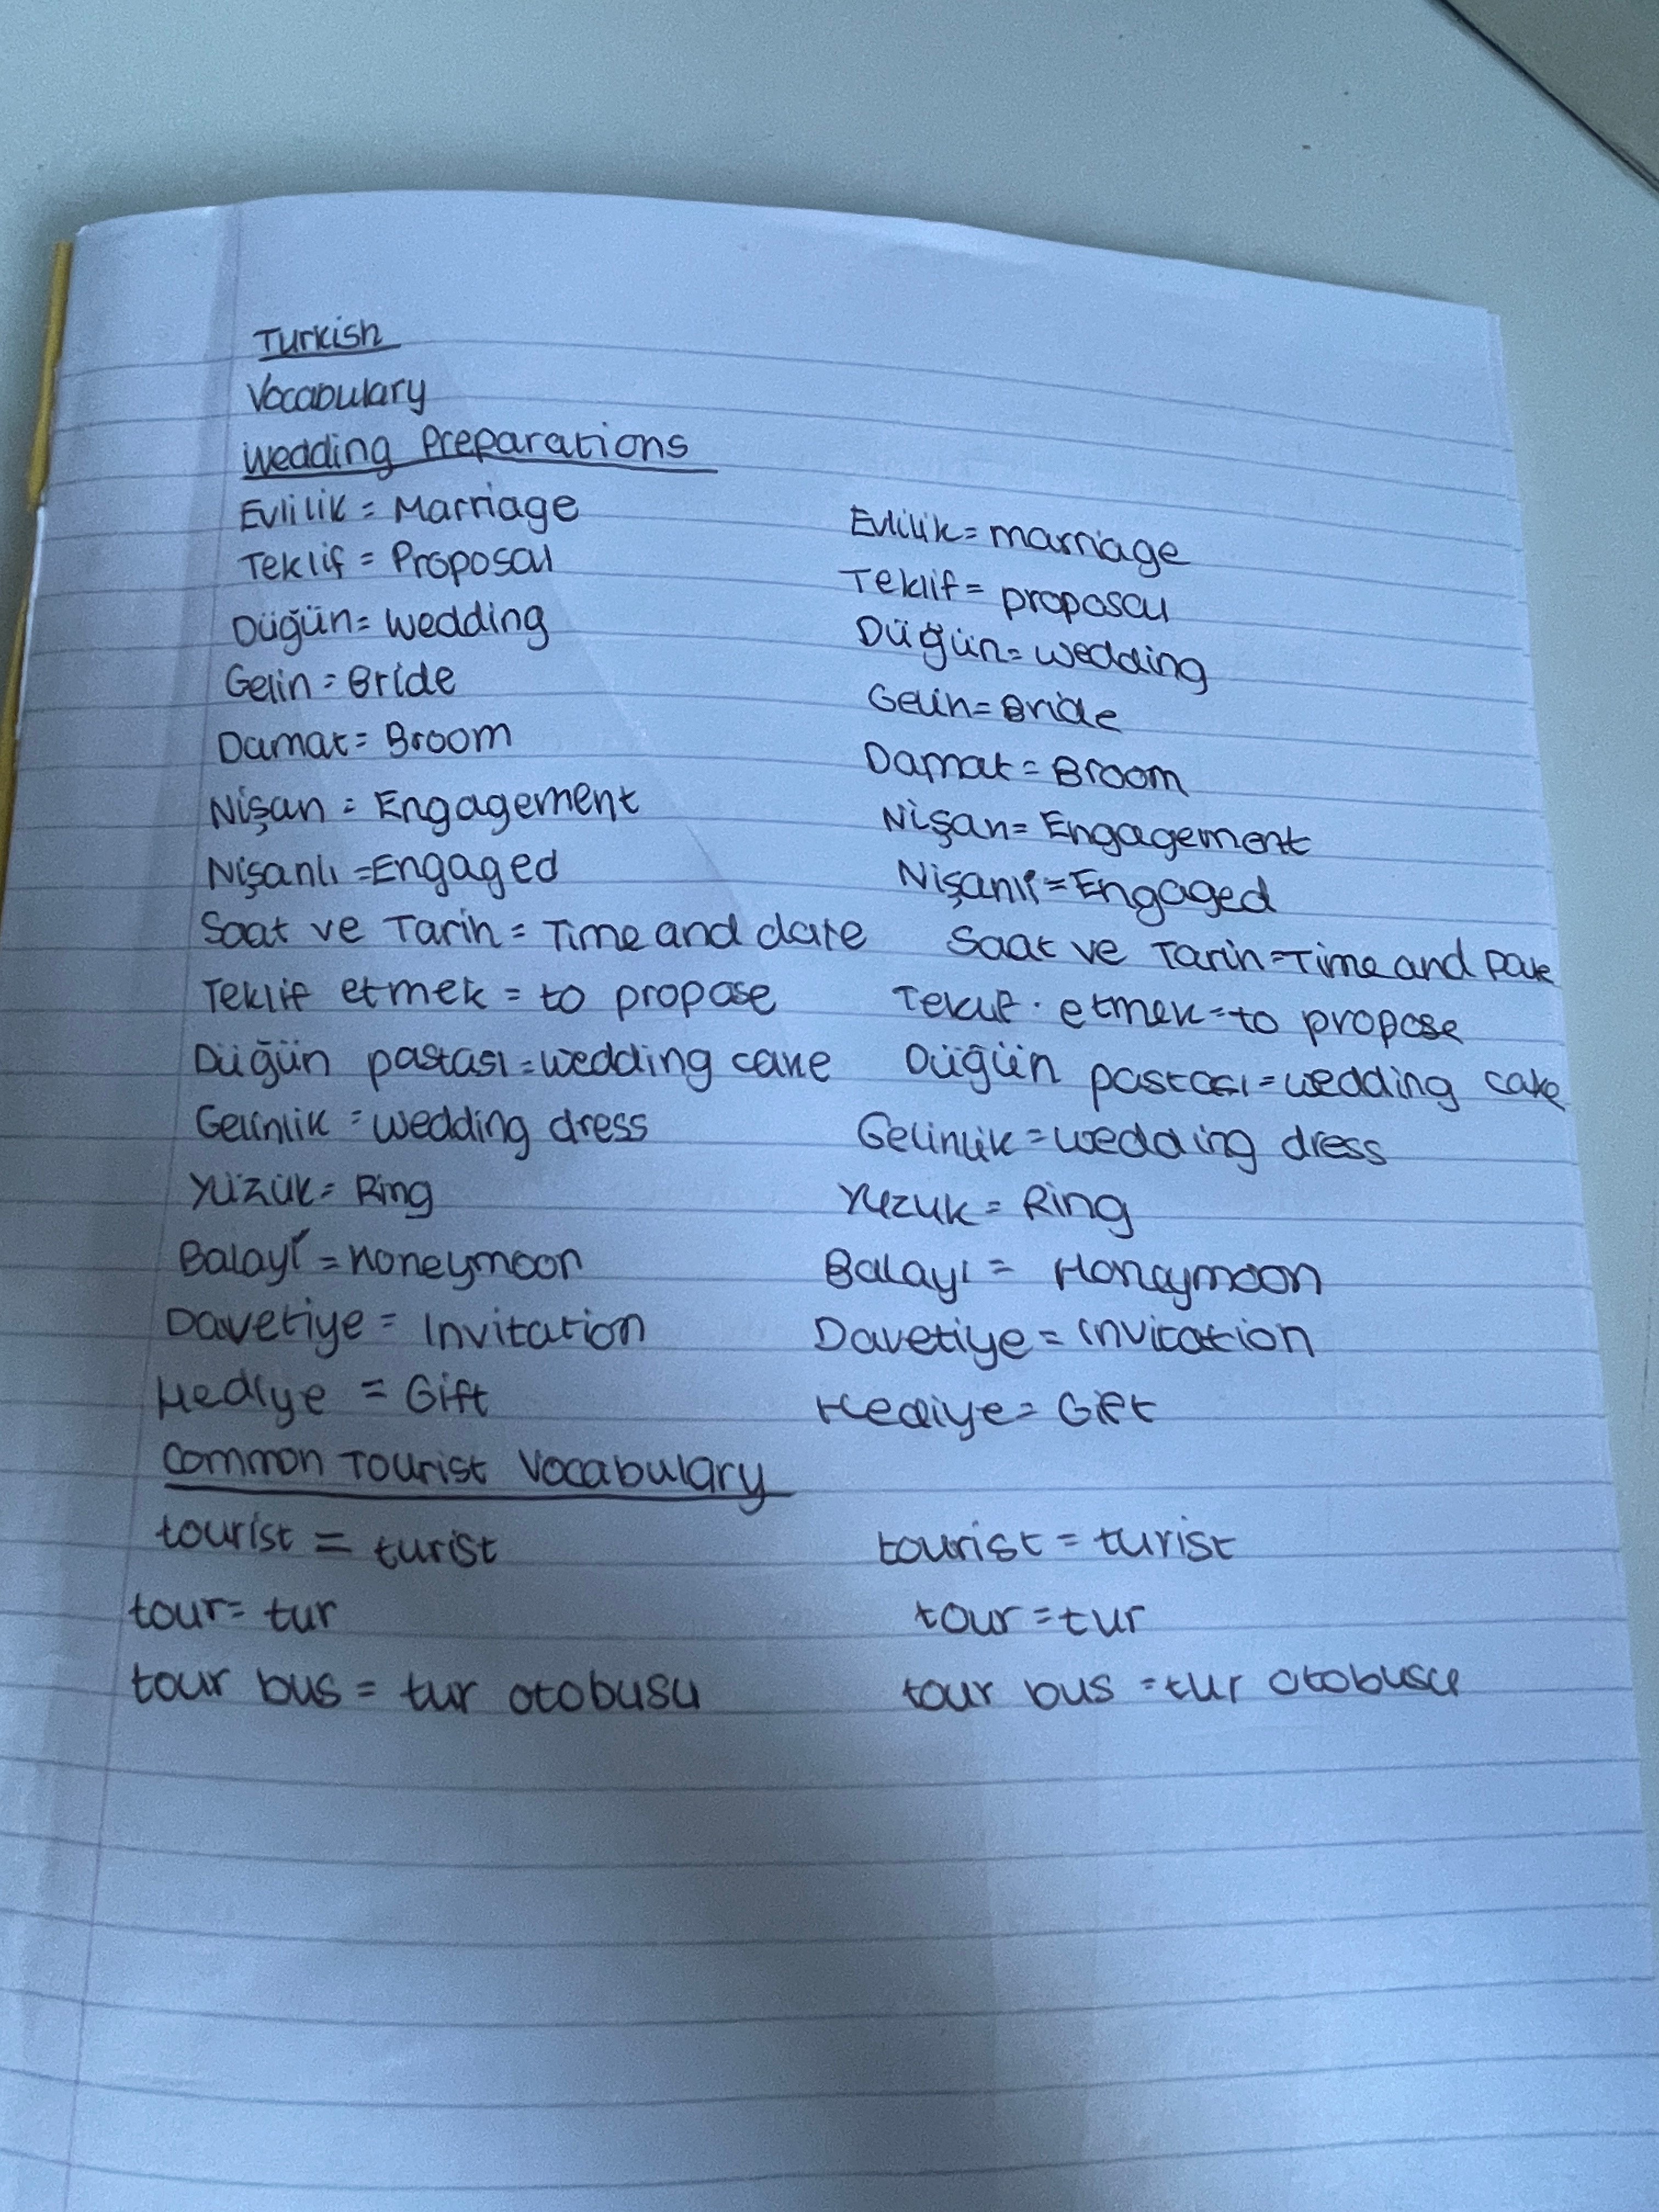 Turkish
Vocabulary
Wedding Preparations
Evlilik = Marriage Evlilik = marriage
Teklif = Proposal Teklif = proposal
Düğün = Wedding Düğün = wedding
Gelin = Bride Gelin = Bride
Damat = Broom Damat = Broom
Nişan = Engagement Nişan = Engagement
Nişanlı = Engaged Nişanlı = Engaged
Saat ve Tarih = Time and date Saat ve Tarih = Time and Date
Teklif etmek = to propose Teklif etmek = to propose
Düğün pastası = wedding cake Düğün pastası = wedding cake
Gelinlik = wedding dress Gelinlik = wedding dress
Yüzük = Ring Yuzuk = Ring
Balayı = Honeymoon Balayı = Honeymoon
Davetiye = Invitation Davetiye = invitation
Hediye = Gift Hediye = Gift
Common Tourist Vocabulary
tourist = turist tourist = turist
tour = tur tour = tur
tour bus = tur otobusu tour bus = tur otobusu